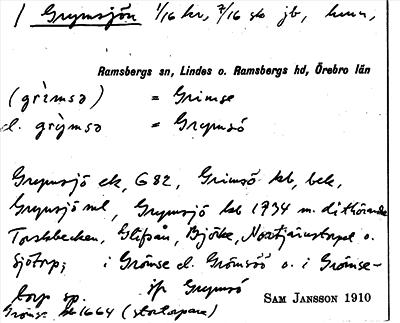 Grymsjön 1/16 kr, 7/16 sk jb, hmn,
Ramsbergs sn, Lindes o. Ramsbergs hd, Örebro län
(grìmsə) = Grimse
el. grỳmsə = Grymsö
Grymsjö ek, G82, Grimsö kb, bek,
Grymsjö ml, Grymsjö kb 1734 m. dithörande
Torshbecken, Glifsån, Björke, Norrtjärnstorpet o.
Sjötorp; i Grömse el. Grömsöö o. i Grömse-
torp sp. Grymsö
Grömse kb 1664 (storopare)
SAM JANSSON 1910